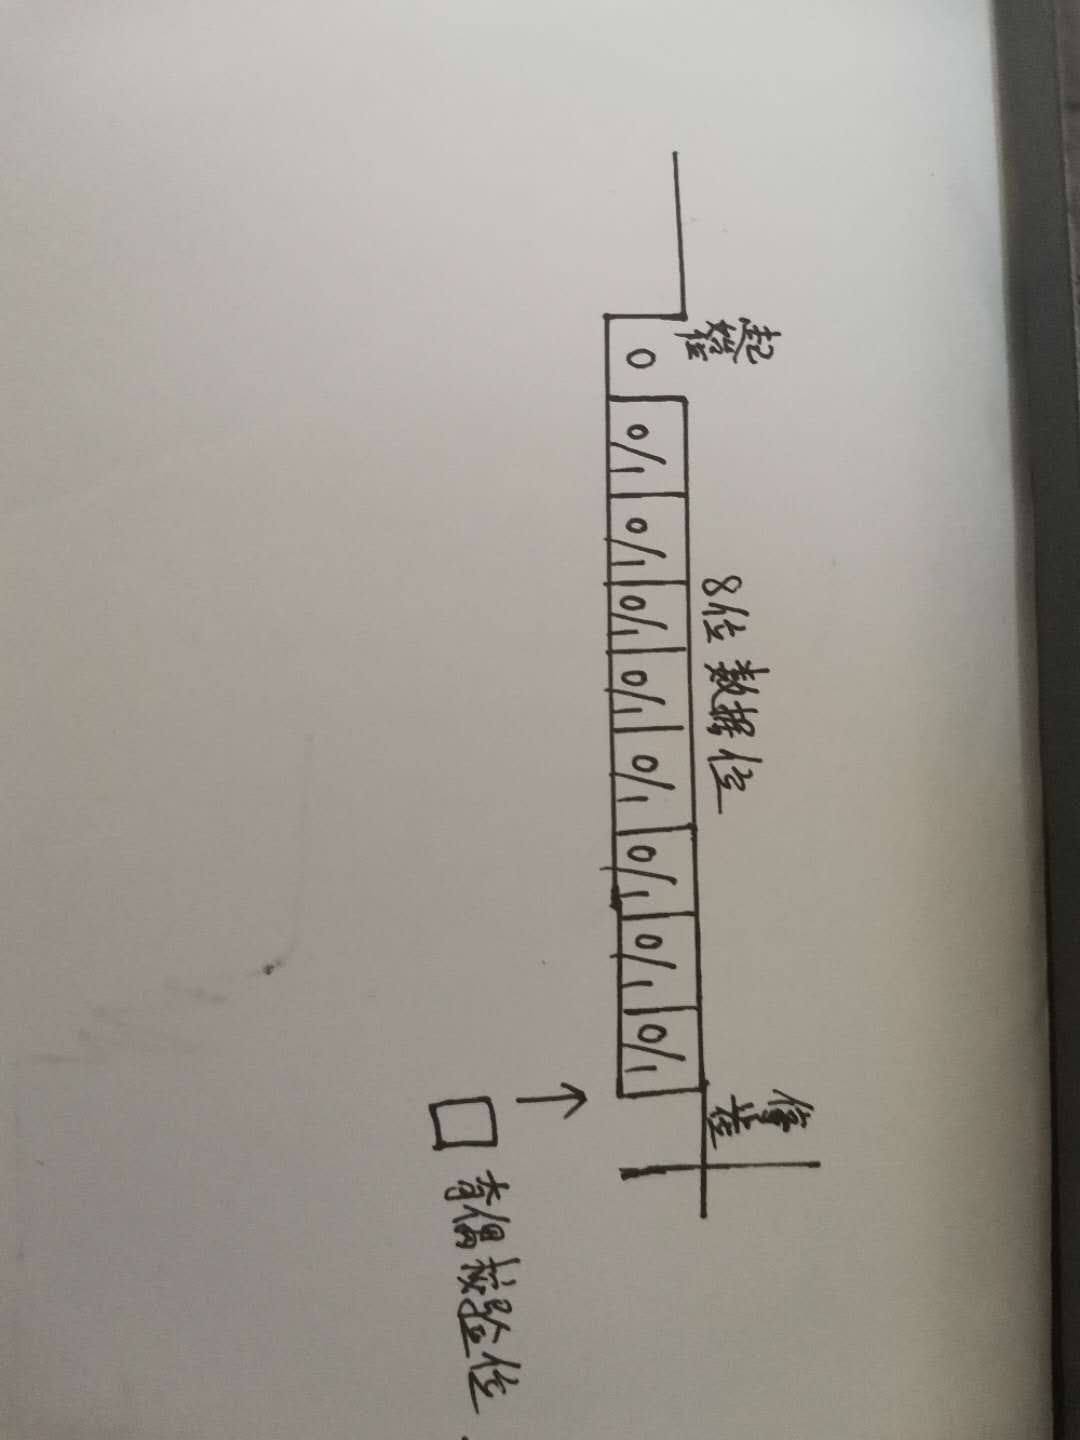 起始位
8位数据位
停止位
0 0/1 0/1 0/1 0/1 0/1 0/1 0/1 0/1
奇偶校验位.